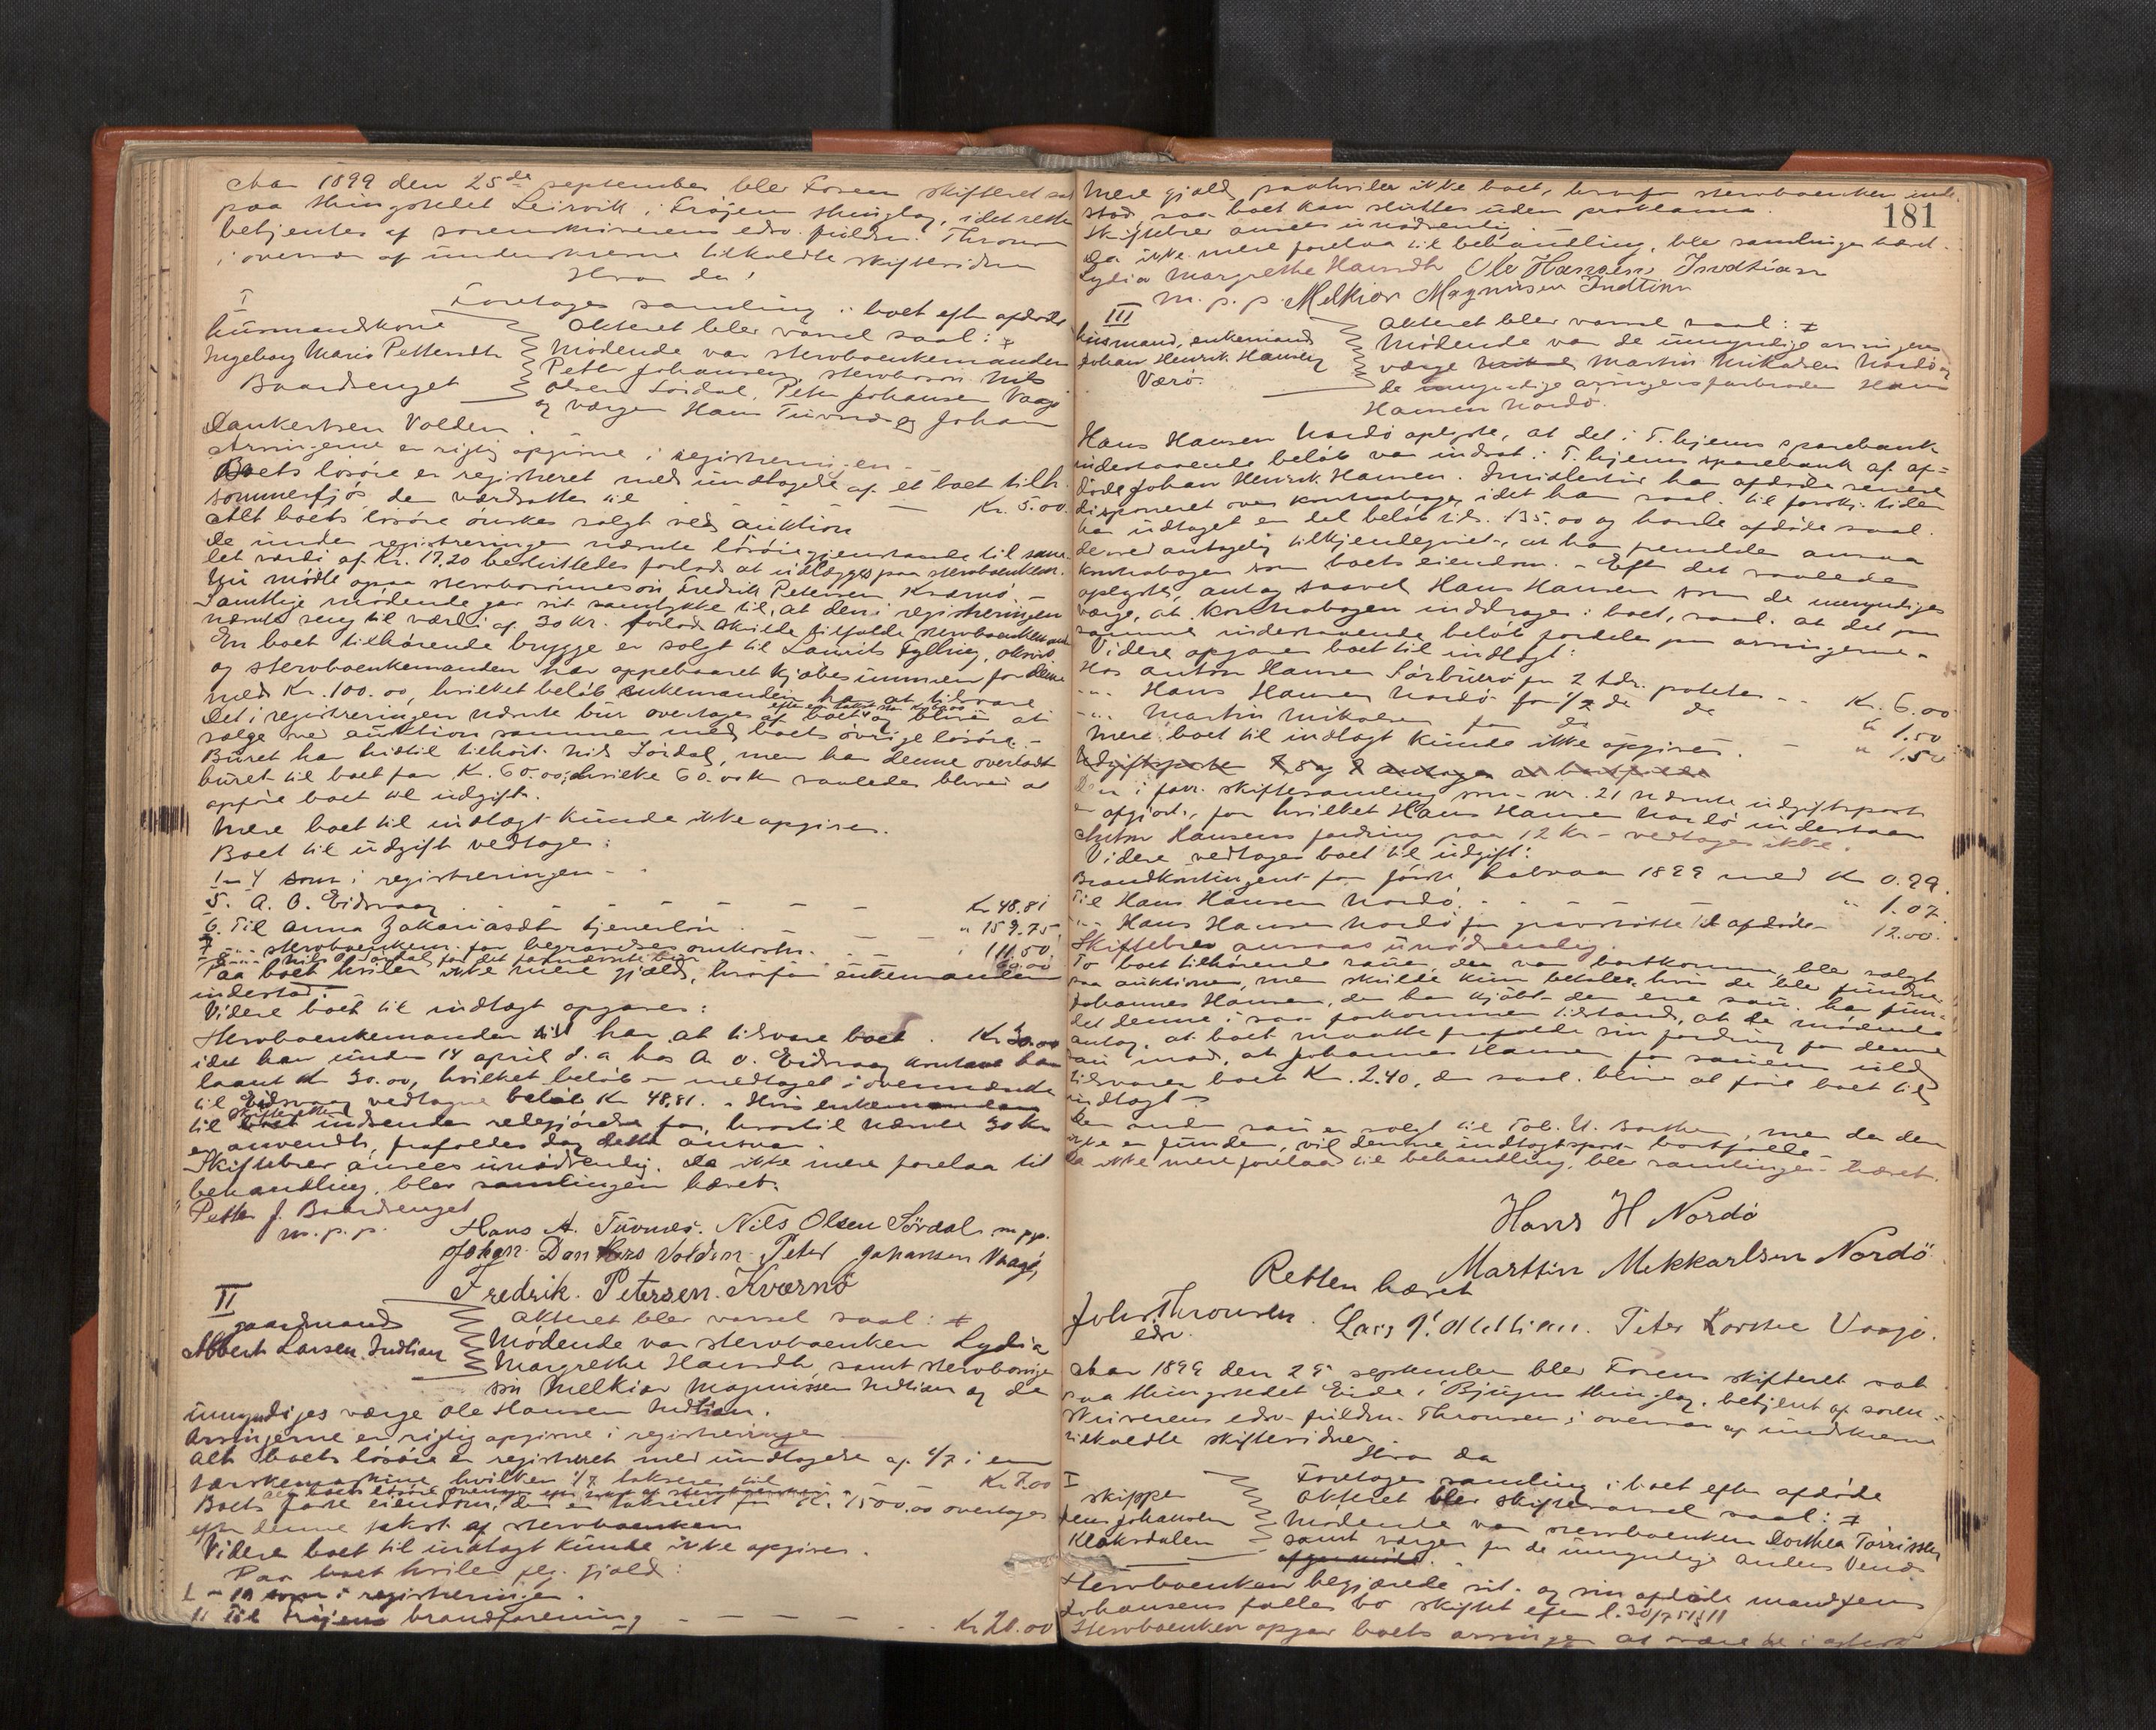 Aar 1899 den 25de september blev Fosen skifteret sat
paa thingstedet Leirvik i Frøjen thinglag, idet retten
betjentes af sorenskriverens edsv. fuldm. Thronsen
i overvær af underskrevne tilkaldte skiftevidner
Hvor da!
I Foretages samling i boet efter afdøde
husmandskone Ingeborg Marie Pettersdtr Baardsenget
Akteret blev varsel saal: #
Mødende var stervboenkemanden
Petter Johansen, stervboson Nils
Olsen Sørdal, Peter Johansen Vaagø
og værgen Hans Tuvnæs og Johan
Dankertsen Valden.
Arvingerne er rigtig opgivne i registreringen.
Boets løsøre er registreret med undtagelse af et boet tilh.
sommerfjøs der værdsattes til — Kr. 5.00.
Alt boets løsøre ønskes solgt ved auktion
De under registreringen nævnte løsøregjenstande til samlet
værdi af Kr. 17.20 besluttedes forlods at udlægges paa stervboenkem.
Nu mødte ogsaa stervbosønnesøn Fredrik Petersen Kværnø. -
Samtlige mødende gav sit samtykke til, at den i registreringen
nævnte seng til værdi af 30 kr. forlods skulde tilfalde stervboenkemand
En boet tilhørende brygge er solgt til Laurits
og stervboenkemanden har oppebaaret kjøbesummen for denne
med Kr. 100.00, hvilket beløb enkemanden har at tilsvare
Det i registreringen nævnte bur overtages af boet og bliver at
sælge ved auktion sammen med boets øvrige løsøre. -
Buret har hidtil tilhørt Nils Sørdal, men har denne overladt
buret til boet for Kr. 60.00, hvilke 60.00 kr saaledes bliver at
opføre boet til udgift.
Mere boet til indtægt kunde ikke opgives.
Boet til udgift vedtages:
1-4 som i registreringen -
5. A. O. Eidsvaag - - - - Kr 48.81
6. Til Anna Zakariasdtr tjenerløn - - " 159.75
7 -"- stervboenkem. for begravelses omkostn. - - 111.50
8 -"- Nils O. Sørdal for det fornævnte bur 60.00
Paa boet hviler ikke mere gjæld, hvorfor enkemanden
indestod. -
Videre boet til indtægt opgaves:
Stervboenkemanden har at tilsvare boet . Kr 30.00
idet han under 14 april d. a hos A O. Eidsvaag kontant har
laant Kr 30.00, hvilket beløb er medtaget i ovennævnte
til Eidsvaag vedtagne beløb Kr 48.81. - Hvis enkemanden
til skifteretten indsender redegjørelse for, hvortil nævnte 30 kr
er anvendt, frafaldes dog dette ansvar.
Skiftebrev ansees unødvendig. Da ikke mere forelaa til
behandling, blev samlingen hævet.
Petter J. Baardsenget
m. p. p.
Hans A. Tuvnæs. Nils Olsen Sørdal m.p.p.
Johan Dankers Valden Peter Johansen Vaagø,
Fredrik. Petersen. Kværnø
II
gaardmand Albert Larsen Indtian
Akteret blev varsel saal: #
Mødende var stervboenken Lydia
Margrethe Hansdtr samt stervboving
søn Melkior Magnussen Indtian og de
umyndiges værge Ole Hansen Indtian.
Arvingerne er rigtig opgivne i registreringen
Alt boets løsøre er registreret med undtagelse af 1/7 i en
tærskemaskine hvilken 1/7 takseres til Kr 7.00
Alt boets løsøre overtages efter takst af stervboenken.
Boets faste eiendom, der er takseret for Kr. 1500.00 overtages
efter denne takst af stervboenken
Videre boet til indtægt kunde ikke opgives.
Paa boet hviler flg. gjæld:
1 - 10 som i registreringen.
11 Til Frøjens brandforening - - - - Kr 20.00
181
Mere gjæld paahviler ikke boet, hvorfor stervboenken inde-
stod, saa boet kan sluttes uden proklama.
Skiftebrev ansees unødvendig.
Da ikke mere forelaa til behandling, blev samlingen hævet.
Lydia Margrethe Hansdtr Ole Hansen Indtian
m. p. p. Melkior Magnusen Indtian
III
husmand, enkemand Johan Henrik Hansen Værø.
Akteret blev varsel saal: #
Mødende var de umyndige arvingers
værge Martin Mikalsen Nordø og
de umyndige arvingers farbroder Hans
Hansen Nordø.
Hans Hansen Nordø oplyste, at det i T.hjems sparebank
indestaaende beløb var indsat i T.hjems sparebank af af-
døde Johan Henrik Hansen. Imidlertid har afdøde senere
disponeret over kontrabogen idet han saal. til forskj. tider
har udtaget en del beløb tils. 135.00 og havde afdøde saal.
derved antagelig tilkjendegivet, at han fremdeles ansaa
kontrabogen som boets eiendom. - Efter det saaledes
oplyste, antog saavel Hans Hansen som de umyndiges
værge, at kontrabogen inddrages i boet, saal. at det paa
samme indestaaende beløb fordeles paa arvingerne. -
Videre opgaves boet til indtægt:
Hos Anton Hansen Sørburø for 2 tdr. poteter - - Kr. 6.00
-"- Hans Hansen Nordø for 1/2 do do " 1.50
-"- Martin Mikalsen for do - " 1.50
Mere boet til indtægt kunde ikke opgives.
Den i forr. skiftesamling som nr. 21 nævnte udgiftspost
er afgjort, for hvilket Hans Hansen Nordø indestaar
Anton Hansens fordring paa 12 Kr - vedtages ikke.
Videre vedtages boet til udgift:
Brandkontingent for første halvaar 1899 med Kr 0.99.
Til Hans Hansen Nordø. - - - - " 1.07.
-"- Hans Hansen Nordø for gravstøtte til afdøde - 12.00.
Skiftebrev ansaaes unødvendig.
To boet tilhørende sauer, der var bortkommen, blev solgt
paa auktionen, men skulde kun betales, hvis de blev fundne.
Johannes Hansen, der har kjøbt den ene sau, har fun-
det denne i saa forkommen tilstand, at de mødende
antog, at boet maatte frafalde sin fordring for denne
sau mod, at Johannes Hansen for sauens uld
tilsvarer boet Kr. 2.40, der saal. bliver at føre boet til
indtægt -
Den anden sau er solgt til Tob. U. men da den
ikke er funden, vil denne indtægtspost bortfalde -
Da ikke mere forelaa til behandling, blev samlingen hævet.
Hans H Nordø
Marttin Mekkarlsen Nordö
Retten hævet
Johs. Thronsen. edsv.
Lars P. Mellian. Peter Vaagø.
Aar 1899 den 29 september blev Fosens skifteret sat
paa thingstedet Eide i Bjugns thinglag, betjent af soren-
skriverens edsv. fuldm. Thronsen i overvær af underskrevne
tilkaldte skiftevidner.
Hvor da
I Foretages samling i boet efter afdøde
skipper Jens Johansen Klaksdalen
Akteret blev skiftevarsel saal: #
Mødende var stervboenken Dorthea Torrissen
samt værgen for de umyndige Anders
Stervboenken begjærede sit og sin afdøde mand Jens
Johansens fælles bo skiftet efter l. 30/7 51 § 11
Stervboenken opgav boets arvinger at være de i